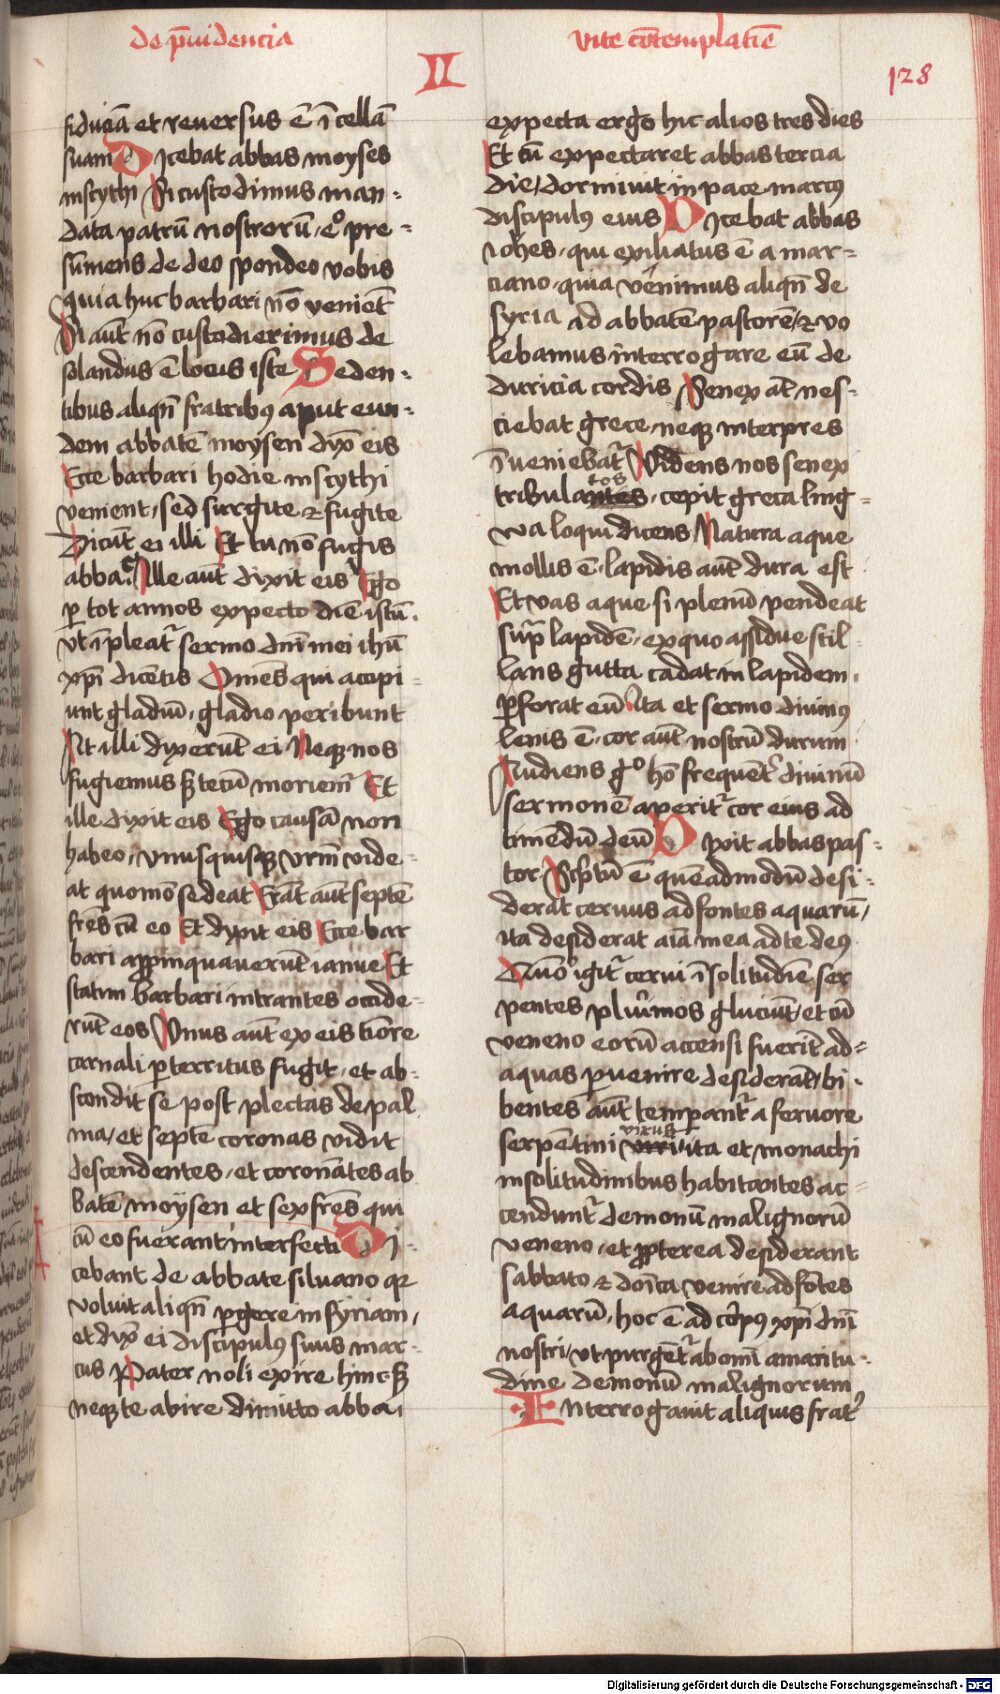 de p̄uidencia
vite cōtemplatiē
II
128
fiduciā et reuersus ē ī cellā
suam Dicebat abbas moyses
in scythi Si custodimus man-
data patrū nostrorū, eº pre-
sumens de deo spondeo vobis
quia huc barbari nō venient
Si aūt nō custodierimus de
solandus ē locus iste Seden-
tibus aliqn̄ fratribꝰ aput eun-
dem abbatē moysen dix̄ eis
Ecce barbari hodie in scythi
venient, sed surgite ⁊ fugite
Dicūt ei illi Et tu nō fugis
abba Ille aūt dixit eis Ego
ꝑ tot annos expecto diē istū.
vt īpleat̉ sermo dn̄i mei ihū
xp̄i dicētis Omēs qui accipi-
unt gladiū, gladio peribunt
At illi dixerūt ei Neqꝫ nos
fugiemus sꝫ tecū moriem̉ Et
ille dixit eis Ego causā non
habeo, vnusquisqꝫ vr̄m vide-
at quomō sedeat Erāt aūt septē
fr̄es cū eo Et dixit eis Ecce bar
bari appinquauerūt ianue Et
statim barbari intrantes occide-
rūt eos Vnus aūt ex eis timore
carnali ꝑterritus fugit, et ab-
scondit se post plectas de pal
ma, et septē coronas vidit
descendentes, et coronātes ab
batē moysen et sex fr̄es qui
cū eo fuerant interfecti Di-
cebant de abbate siluano qꝛ
voluit aliqn̄ ꝑgere in syriam,
et dix̄ ei discipulꝰ suus mar-
cus Pater noli exire hinc sꝫ
neqꝫ te abire dimitto abba,
expecta ergo hic alios tres dies
Et cū expectaret abbas tercia
die, dormiuit in pace marcꝰ
discipulꝰ eius Dicebat abbas
ioh̄es, qui exiliatus ē a mar-
ciano, quia venimus aliqn̄ de
syria ad abbatē pastorē, ⁊ vo
lebamus interrogare eū de
duricia cordis Senex aūt nes-
ciebat grece, neqꝫ interpres
īueniebat̉ Videns nos senex
tribulatos, cepit greca ling-
wa loqui dicens Natura aque
mollis ē, lapidis aūt dura est
Et vas aque si plenū pendeat
sup̄ lapidē, ex quo assidue stil-
lans gutta cadat in lapidem,
ꝑforat eū Ita et sermo diuinꝰ
lenis ē, cor aūt nostrū durum
Audiens gº hō frequēt̉ diuinū
sermonē aperit̉ cor eius ad
timēdū deū Dixit abbas pas-
tor Scptū ē quēadmodū desi-
derat ceruus ad fontes aquarū,
ita desiderat aīa mea ad te deꝰ
Qm̄ igit̉ cerui ī solitudīe ser
pentes plurimos gluciūt, et cū
veneno eorū accensi fuerīt ad-
aquas ꝑuenire desiderāt, bi-
bentes aūt tempant̉ a feruore
serpētini virus ita et monachi
in solitudinibus habitantes ac-
cendunt̉ demonū malignorū
veneno, et ꝓpterea desiderant
sabbato ⁊ dn̄ica venire ad fōtes
aquarū, hoc ē ad corpꝰ xp̄i dn̄i
nostri, vt purgēt̉ ab om̄i amaritu-
dine demonū malignorum
Interrogauit aliquis frat̉
Digitalisierung gefördert durch die Deutsche Forschungsgemeinschaft - DFG